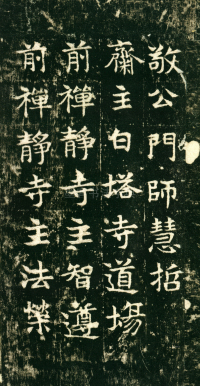 敬公門師慧哲
齋主白塔寺道場
前禪靜寺主智遵
前禪靜寺主法榮